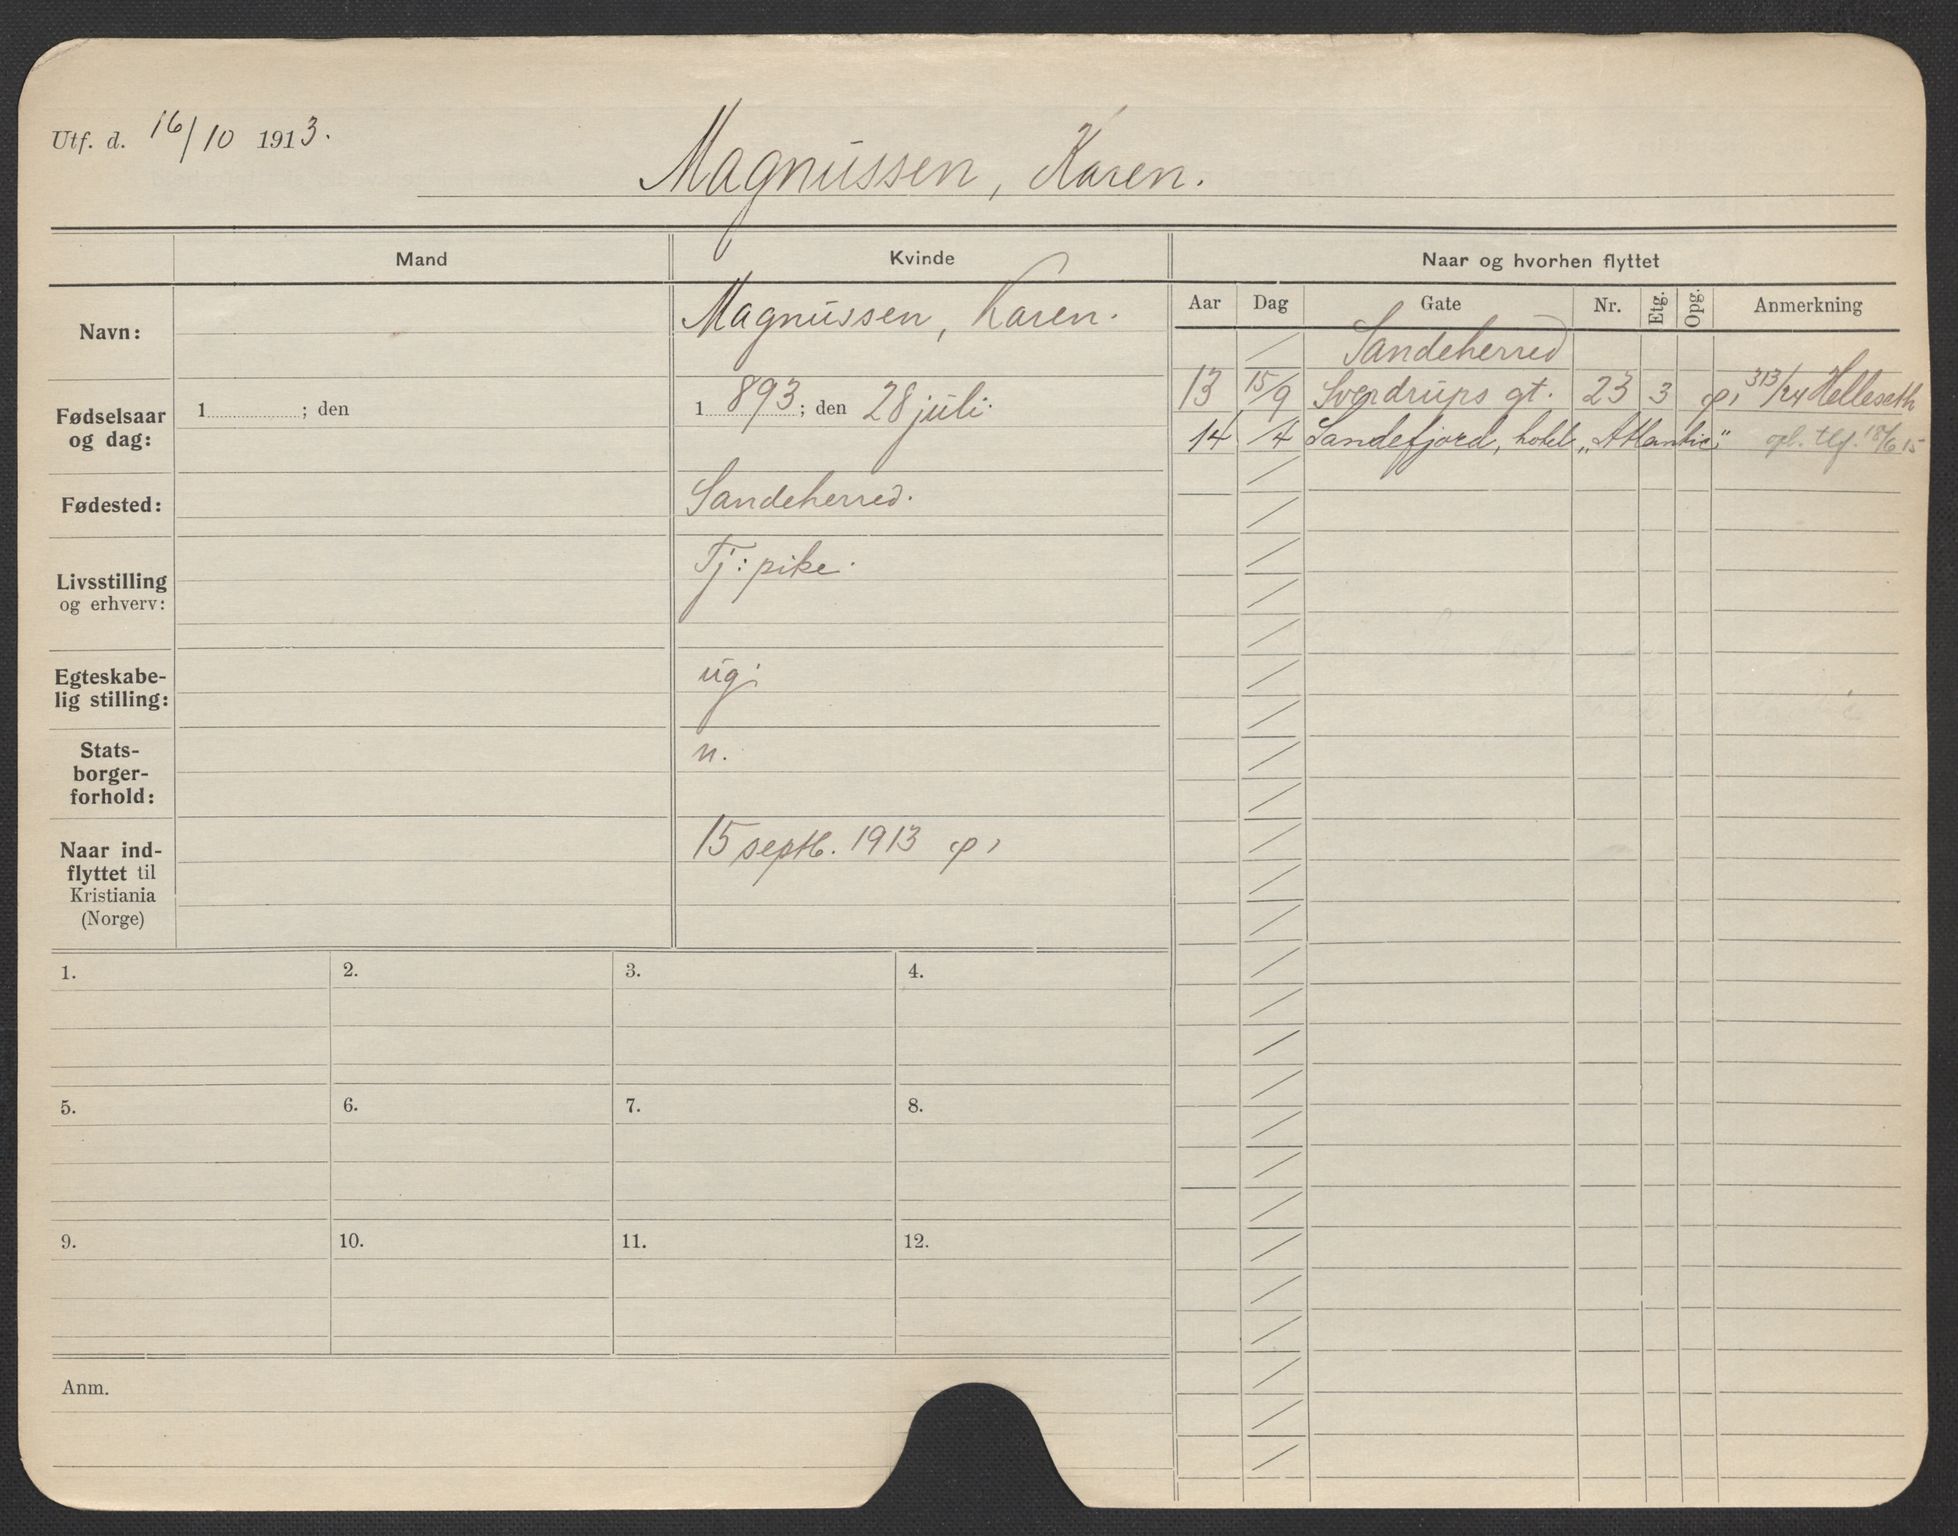 Utf. d. 16/10 1913.
Magnussen, Karen.
Mand
Kvinde
Naar og hvorhen flyttet
Navn:
Magnussen, Karen.
Fødselsaar og dag:
1 ; den
1 893 ; den 28 juli.
Fødested:
Sandeherred.
Livsstilling og erhverv:
Tj: pike.
Egteskabe-
lig stilling:
ug.
Stats-
borger-
forhold:
n.
Naar ind-
flyttet til
Kristiania
(Norge)
15 septb. 1913
Aar Dag Gate Nr. Etg. Opg. Anmerkning
/ Sandeherred
13 15/9 Sverdrups gt. 23 3 313/24 Helleseth
14 /4 Sandefjord, hotel „Atlantic" opl. tlf. 18/6 15
1. 2. 3. 4.
5. 6. 7. 8.
9. 10. 11. 12.
Anm.